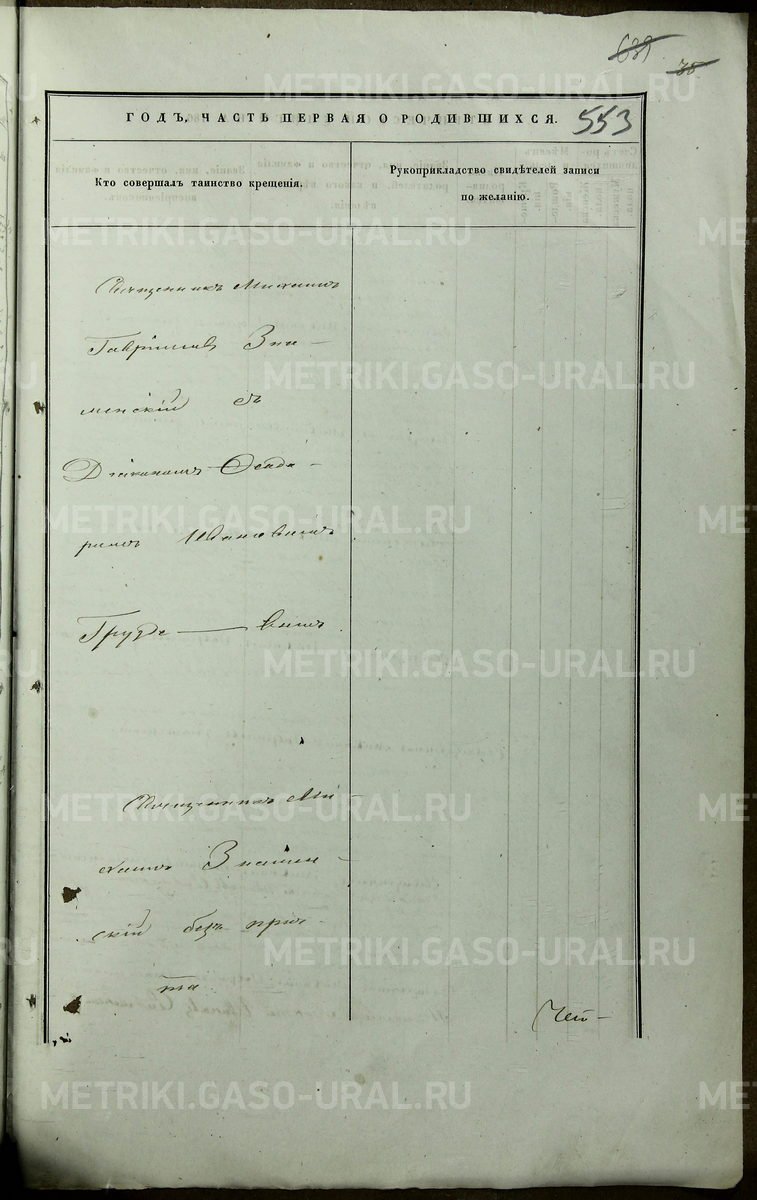 639
38
553
ГОДЪ, ЧАСТЬ ПЕРВАЯ О РОДИВШИХСЯ.
Кто совершалъ таинство крещенія.
Рукоприкладство свидѣтелей записи
по желанію.
Священникъ Михаилъ
Гавріиловъ Зна-
менскій съ
Діакономъ
Ивановымъ
Священникъ Ми-
хаилъ Знамен-
скій безъ при-
та
METRIKI.GASO-URAL.RU